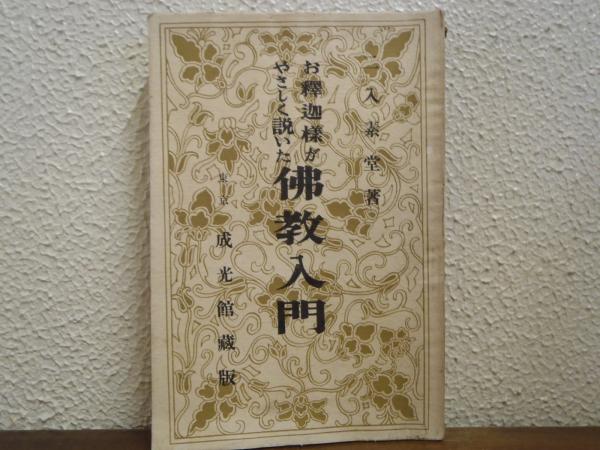 一入素堂著
お釋迦様が
やさしく説いた
佛教入門
東京 成光館藏版